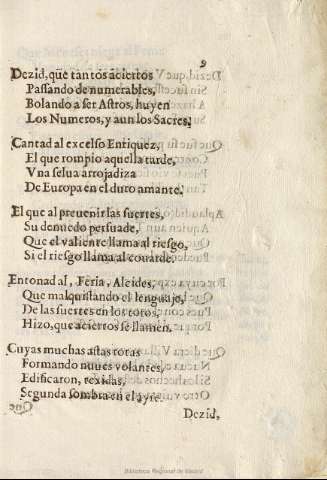 9
Dezid, que tantos aciertos
Passando de numerables,
Bolando a ser Astros, huyen
Los Numeros, y aun los Sacres.
Cantad al excelso Enriquez,
El que rompio aquella tarde,
Vna selua arrojadiza
De Europa en el duro amante.
El que al preuenir las suertes,
Su denuedo persuade,
Que el valiente llama al riesgo,
Si el riesgo llama al couarde.
Entonad al, Feria, Alcides,
Que malquistando el lenguaje,
De las suertes en los toros,
Hizo, que aciertos se llamen.
Cuyas muchas astas rotas
Formando nuues volantes,
Edificaron, texidas,
Segunda sombra en el ayre.
Dezid,
Biblioteca Regional de Madrid